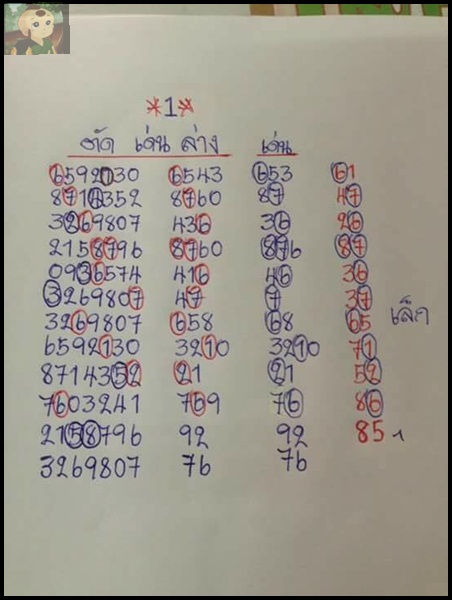 *1*
ตัด เด่น ล่าง เด่น
6592130 6543 653 61
8714352 8760 87 47
3269807 436 36 26
2158796 8760 876 87
0936574 416 46 36
3269807 47 7 37
3269807 658 68 65
เล็ก
6592130 3210 3210 71
8714352 21 21 52
7603241 769 76 86
2158796 92 92 85
3269807 76 76